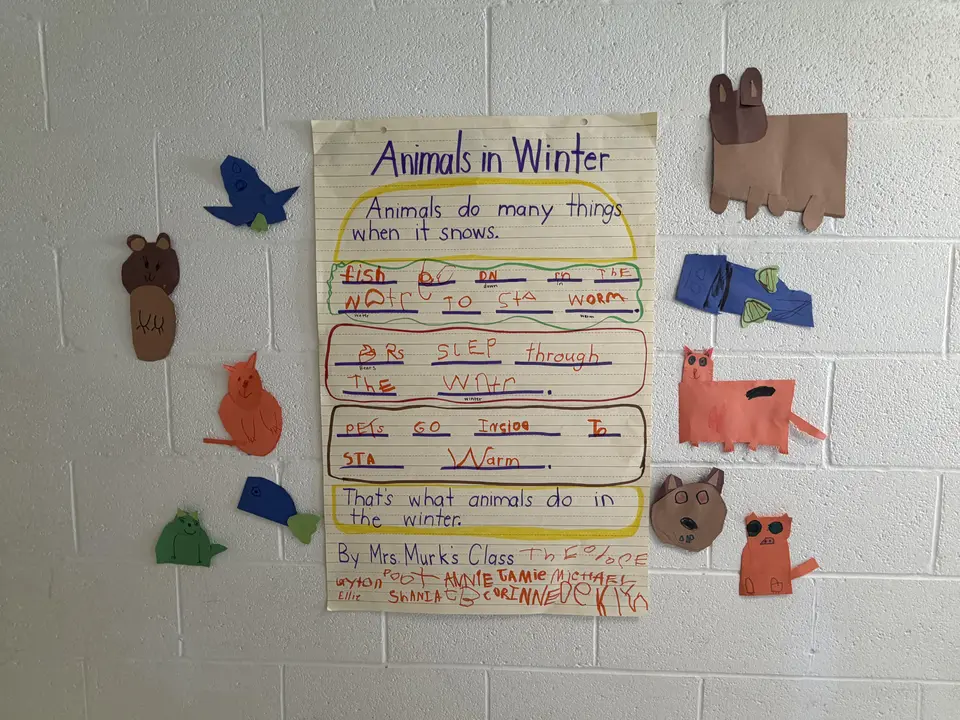 Animals in Winter
Animals do many things
when it snows.
fish go DN in ThE
down in
NOtr TO StA WORM.
water warm
Rs SLEP through
Bears
ThE Wntr.
winter
PETs GO Insioe To
STA Warm.
That's what animals do in
the winter.
By Mrs. Murk's Class
ANNIE TAMIE MICHAEL
Ellie SHANIA CORINNE